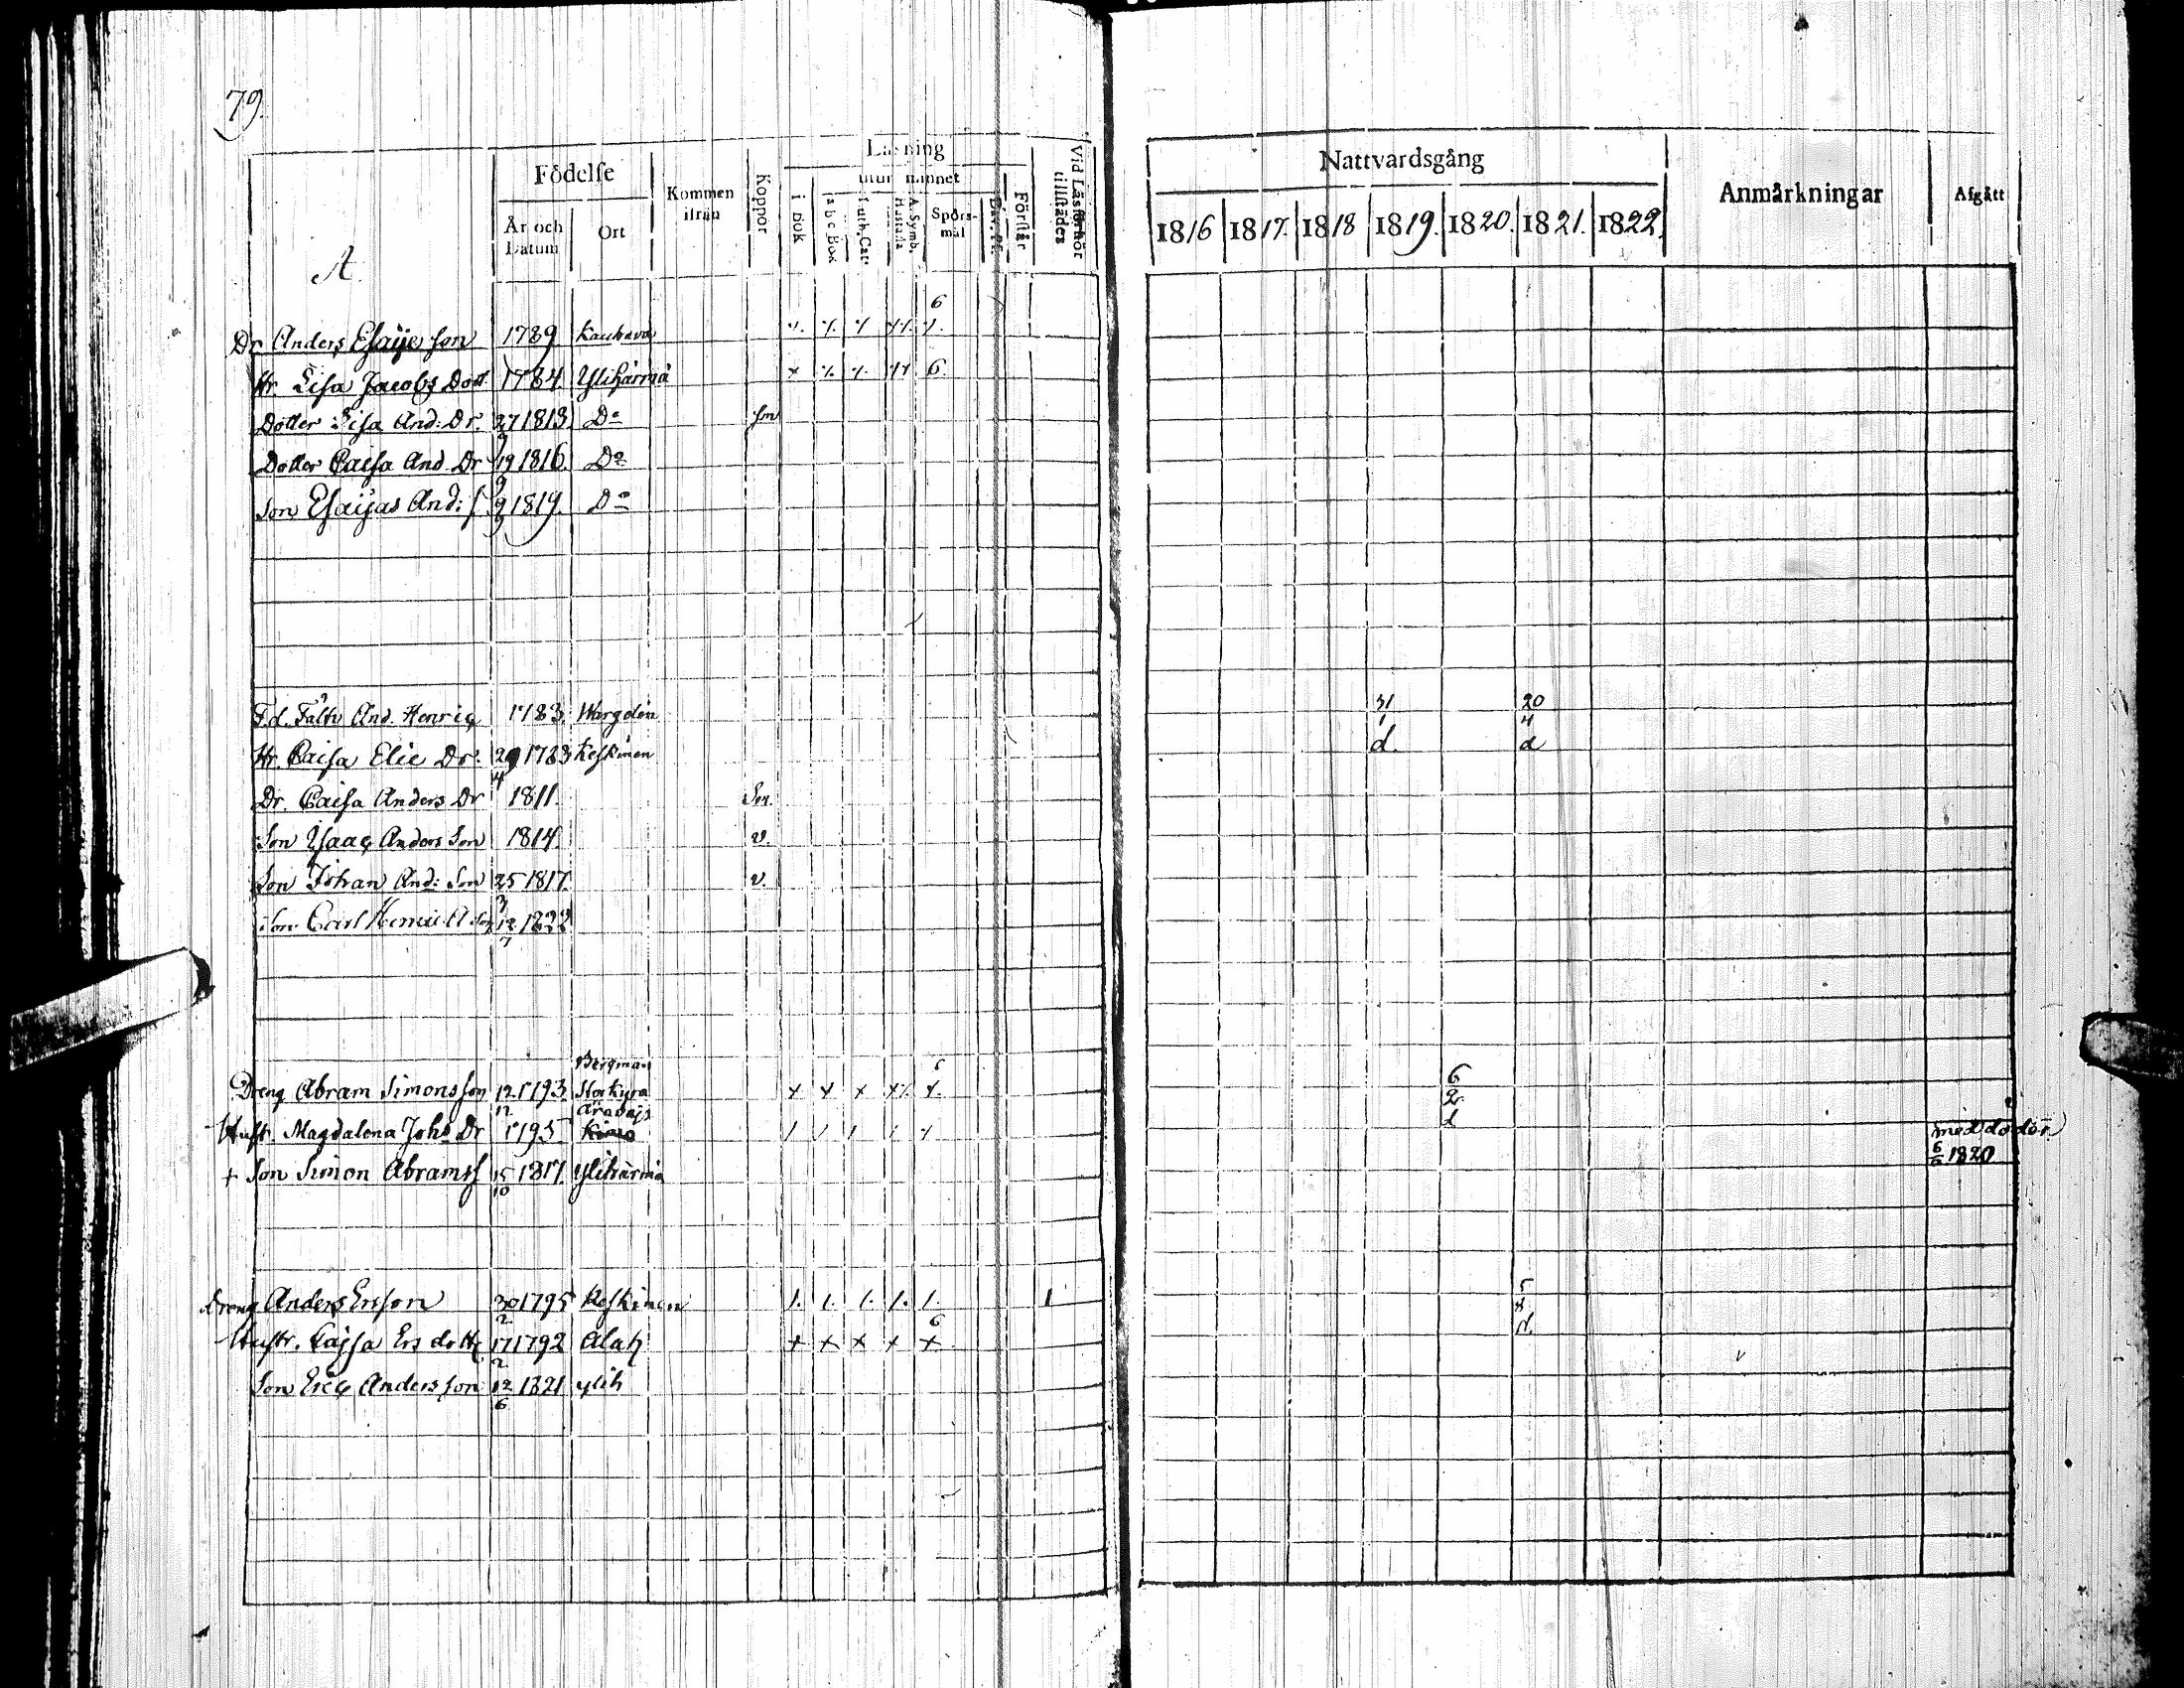 79.
A.
Födelse
År och Datum
Ort
Kommen ifrån
Koppor
Läsning
i Bok
utur minnet
a b c Bok
Luth. Cat.
A. Symb. Hustafla
Spörs-mål
Dav. Ps.
Förstår
Vid Läsförhör tillstädes
Nattvardsgång
1816 1817. 1818 1819. 1820. 1821. 1822.
Anmärkningar
Afgått
6
Dr Anders Esaije son 1789 Kauhava
Hr. Lisa Jacobs Dott 1784 Ylihärmä 6.
Dotter Lisa And: Dr. 27/9 1813. Do
Dotter Caisa And Dr 19/9 1816. Do
Son Esaijas And: s. 9/9 1819. Do
F.d. Fältv And. Henriç 1783. Wargden 31/1 20/4
Hr. Caisa Elie Dr. 29/4 1783 Keskinen d. d
Dr. Caisa Anders Dr 1811
Son Ysaaç Anders Son 1814. v.
Son Johan And: Son 25/3 1817. v.
Son Carl Henric A Son 12/7 1822
Bergman
Dreng Abram Simonsson 12/12 1793. Storkyra 6/2
Hust. Magdalena Joh: Dr 1795 d
med döden
+ Son Simon Abramss 15/10 1817. Ylihärmä 6/6 1820.
Dreng Anders Ersson 30/2 1795 Keskinen 1. 1. 1. 1. 1. 1
6
Hustr. Cajsa Ers dottr 17/2 1792 Alah + + + + +
Son Eriç Andersson 12/6 1821 ylih